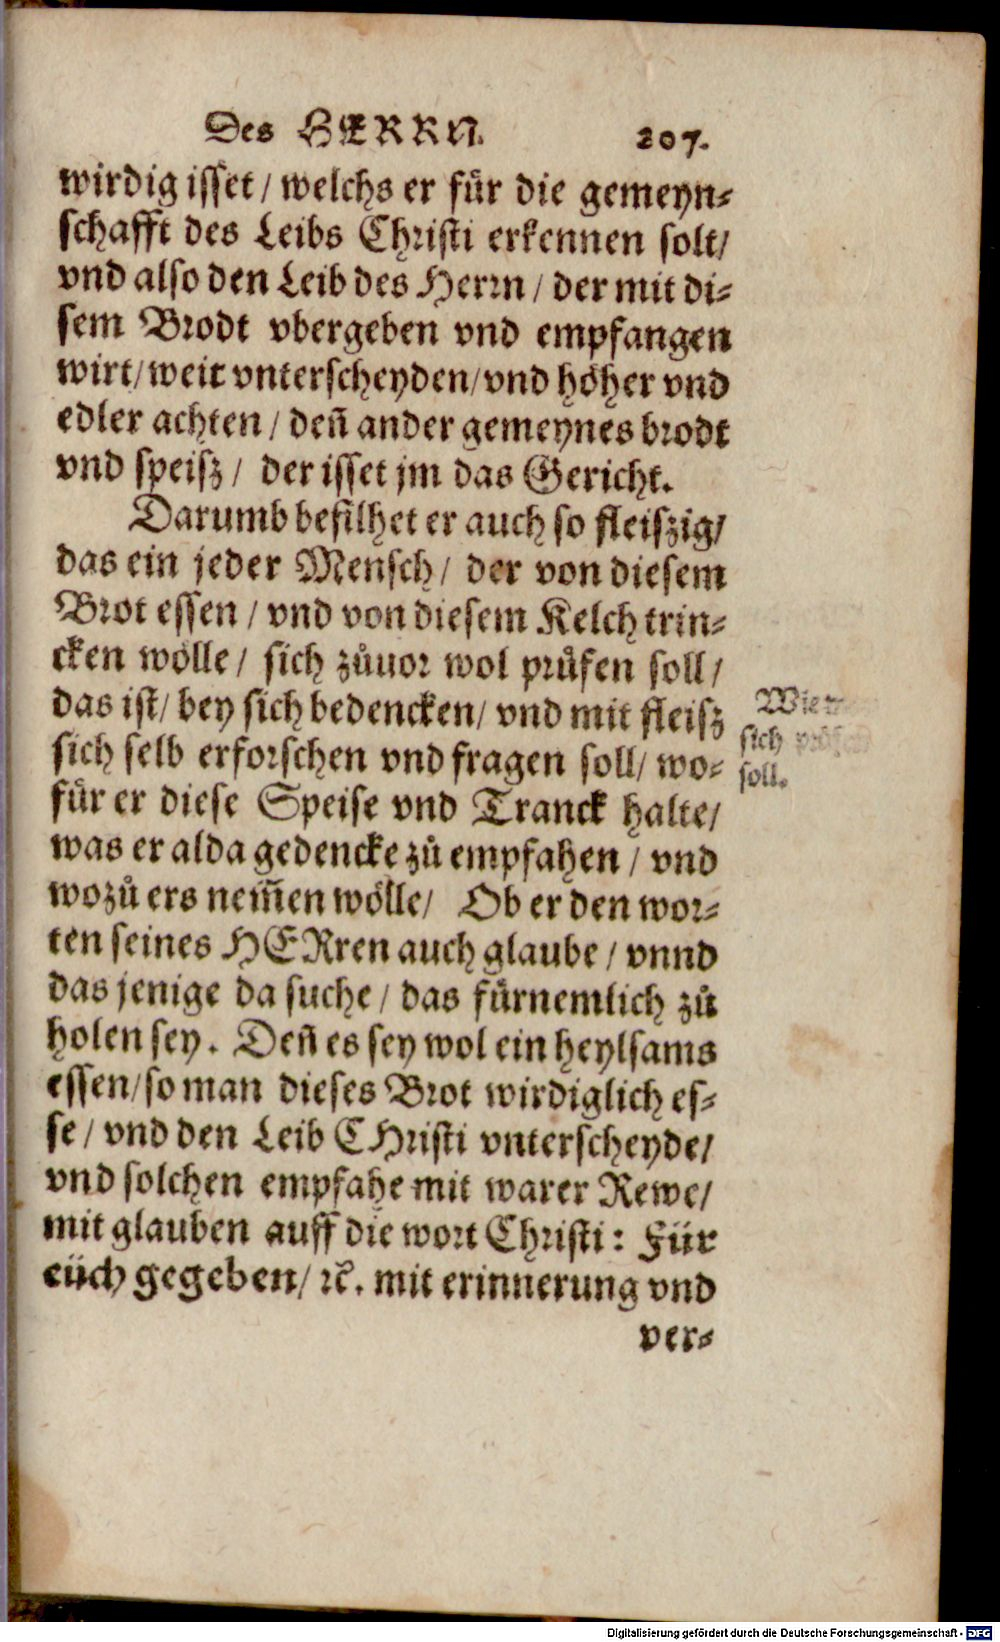 Des HERRN. 207.
wirdig isset / welchs er für die gemeyn⸗
schafft des Leibs Christi erkennen solt/
vnd also den Leib des Herrn / der mit di⸗
sem Brodt vbergeben vnd empfangen
wirt/ weit vnterscheyden/ vnd höher vnd
edler achten / deñ ander gemeynes brodt
vnd speisz / der isset jm das Gericht.
Darumb befilhet er auch so fleiszig/
das ein jeder Mensch / der von diesem
Brot essen / vnd von diesem Kelch trin⸗
cken wölle / sich zůuor wol prüfen soll /
das ist / bey sich bedencken / vnd mit fleisz
sich selb erforschen vnd fragen soll / wo⸗
für er diese Speise vnd Tranck halte/
was er alda gedencke zů empfahen / vnd
wozů ers nem̃en wölle / Ob er den wor⸗
ten seines HERren auch glaube / vnnd
das jenige da suche / das fürnemlich zů
holen sey. Deñ es sey wol ein heylsams
essen/ so man dieses Brot wirdiglich es⸗
se / vnd den Leib CHristi vnterscheyde/
vnd solchen empfahe mit warer Rewe/
mit glauben auff die wort Christi: Für
eüch gegeben/ ꝛc. mit erinnerung vnd
ver⸗
Wie
sich
soll.
Digitalisierung gefördert durch die Deutsche Forschungsgemeinschaft - DFG